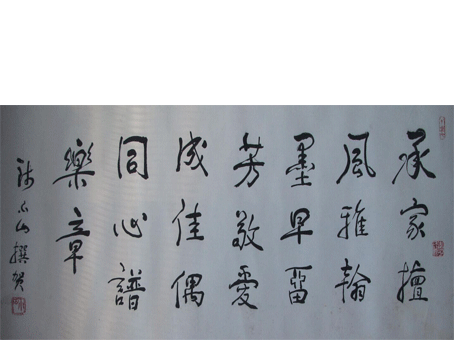 承家擅
風雅翰
墨早留
芳敬愛
成佳偶
同心譜
樂章
山撰贺